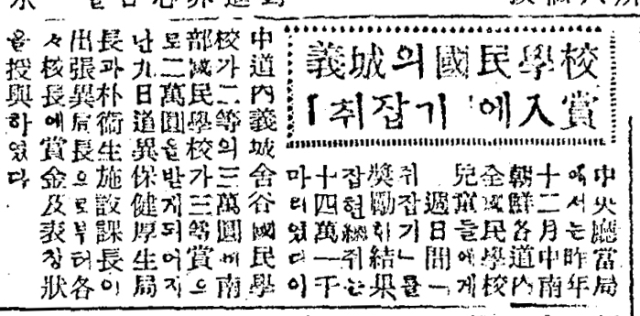 義城의國民學校
「취잡기」에入賞
中央廳當局
에서는昨年
十二月中南
朝鮮各道內
全國民學校
兒童들에게
一週日間「
취잡기」를
奬勵한結果
잡힌總취는
十四萬一千
마리었다이
中道內義城舍谷國民學
校가二等의三萬圓에南
部國民學校가三等賞으
로二萬圓을받게되어지
난九日道異保健厚生局
長과朴衛生施設課長이
出張異局長으로부터各
々校長에賞金及表彰狀
을授與하였다